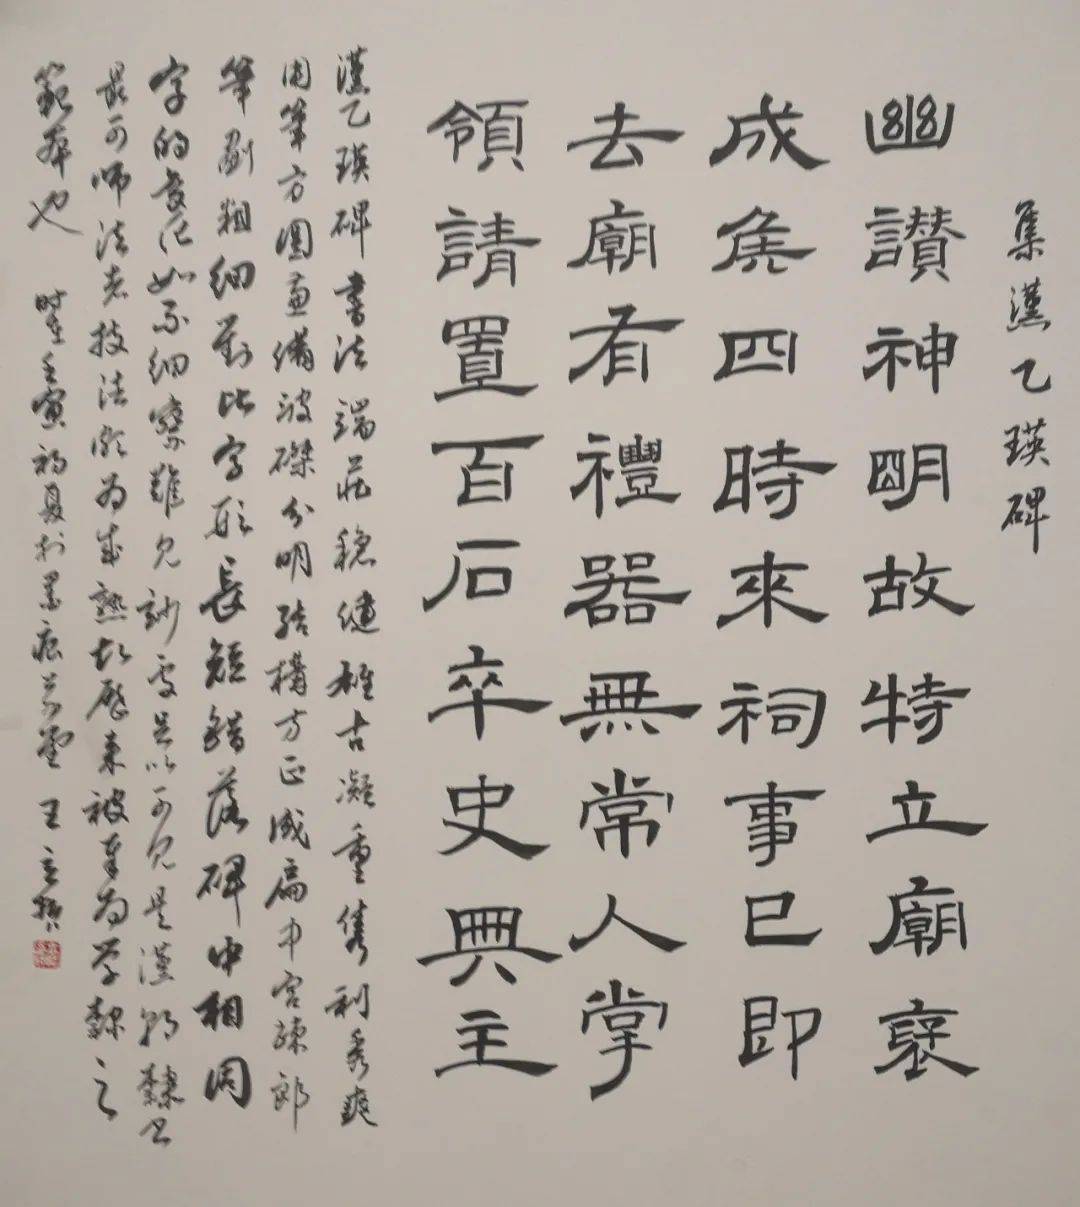 集漢乙瑛碑
幽讃神明故特立廟褒
成矦四時來祠事已即
去廟有禮器無常人掌
領請置百石卒史典主
漢乙瑛碑書法端莊穩健雄古凝重隽利秀爽
用筆方圓兼備波磔分明結構方正咸扁中宫疎郎
筆劃粗細對比字形長短錯落碑中相同
字的变化如不细察難見妙處是以可見是漢朝隸書
最可師法者技法形為成熟故歷來被奉為學隸之
範本也 時在壬寅初夏於墨痕
王立